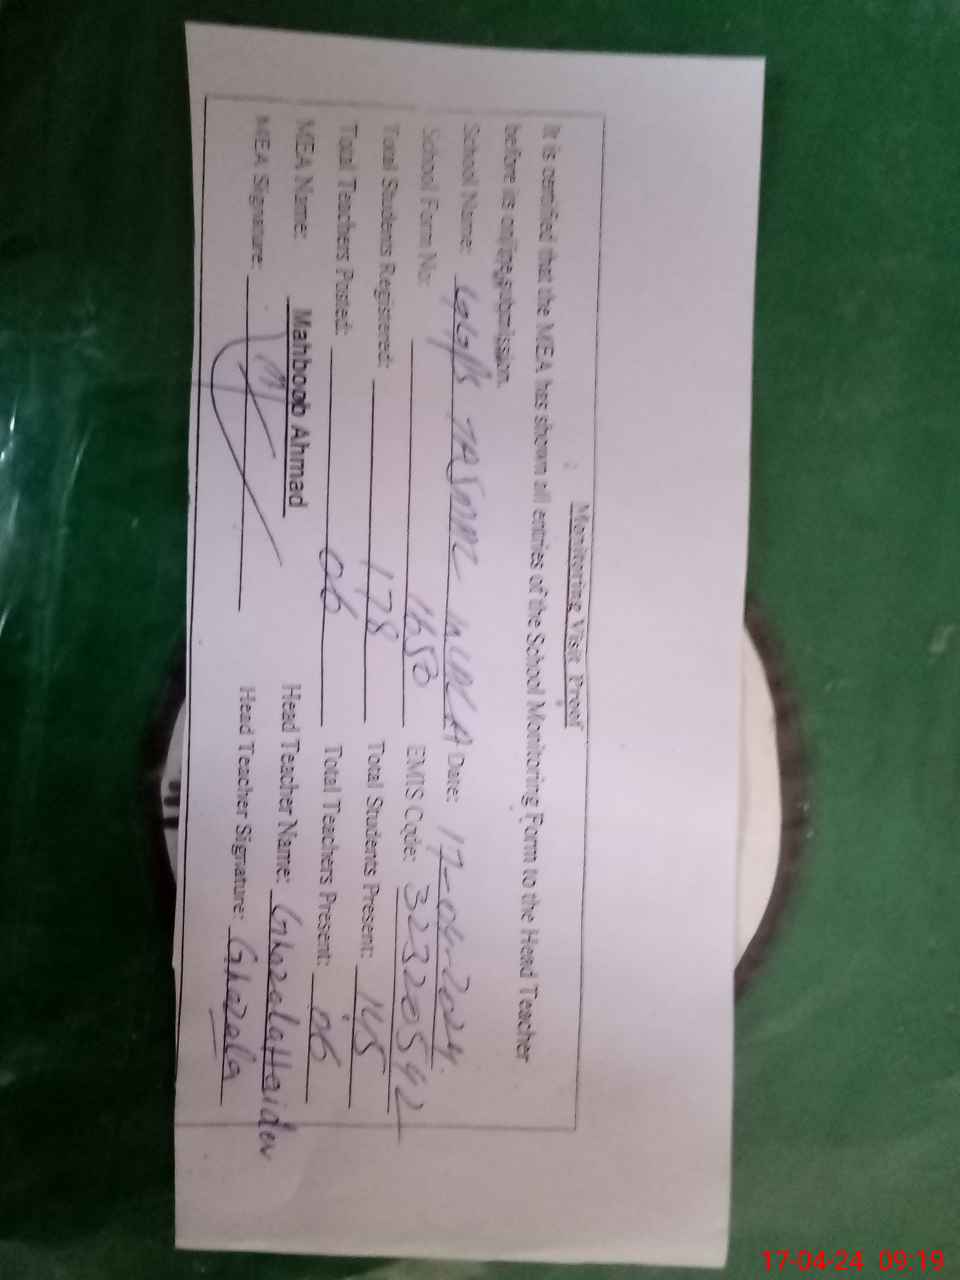 Monitoring Visit Proof
It is certified that the MEA has shown all entries of the School Monitoring Form to the Head Teacher
before its online submission.
School Name: GGPS Date: 17-04-2024.
School Form No: 1650 EMIS Code: 32320542
Total Students Registered: 178 Total Students Present: 145
Total Teachers Posted: 06 Total Teachers Present: 06
MEA Name: Mahboob Ahmad Head Teacher Name: Ghazala Haider
MEA Signature: Head Teacher Signature: Ghazala
17-04-24 09:19